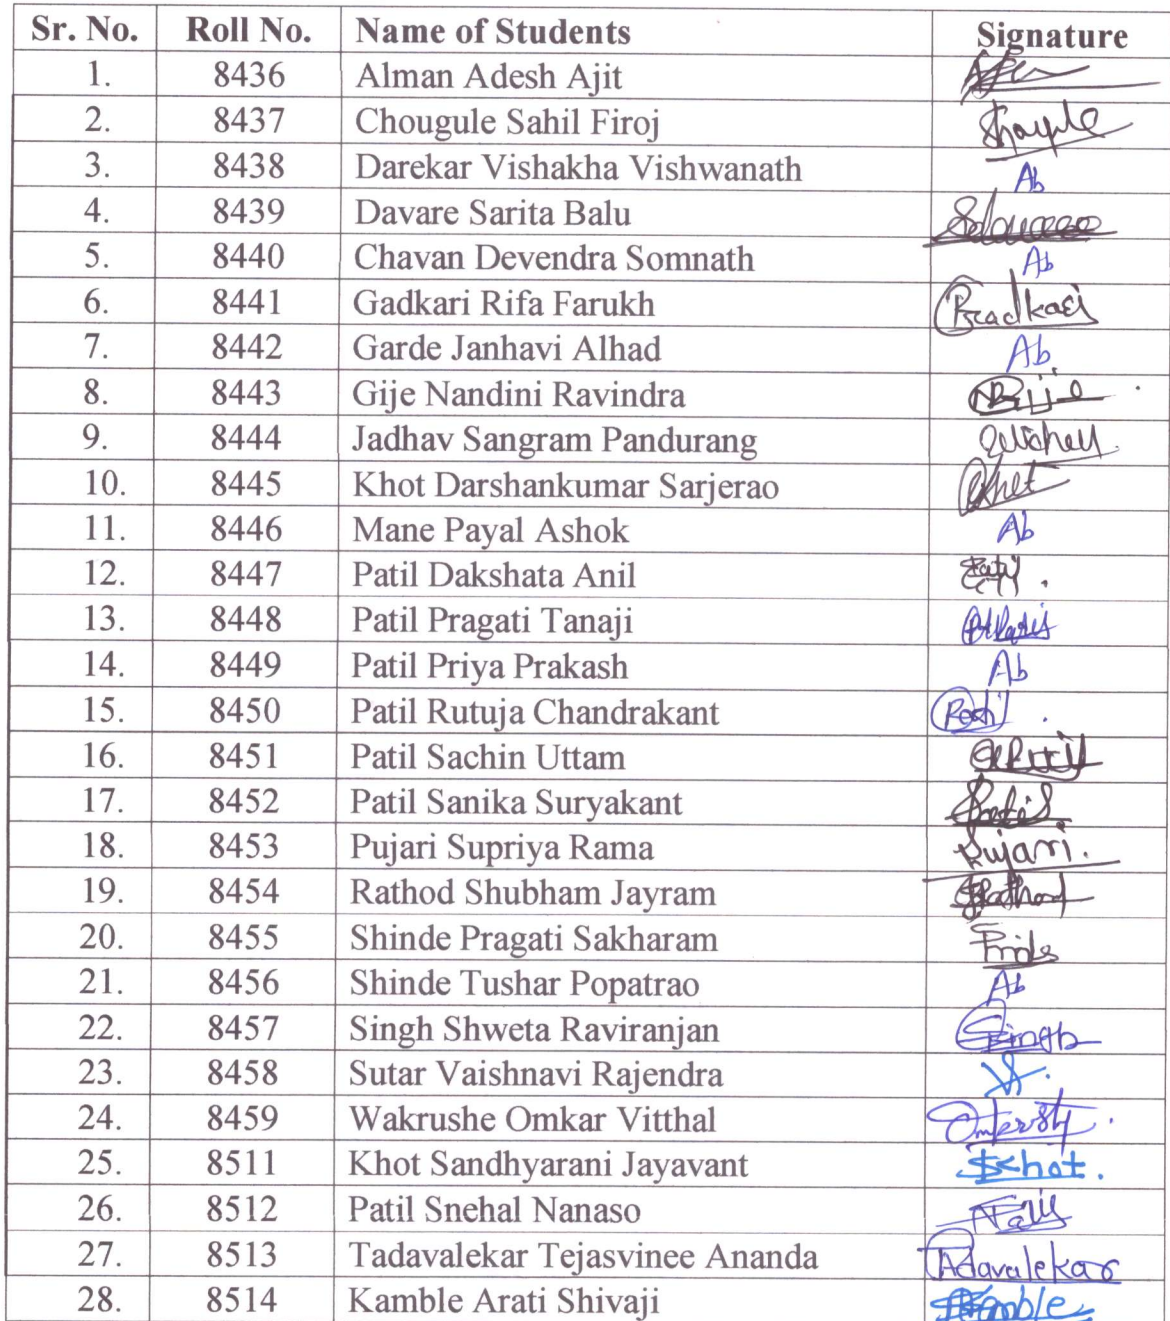 Sr. No. Roll No. Name of Students Signature
1. 8436 Alman Adesh Ajit
2. 8437 Chougule Sahil Firoj
3. 8438 Darekar Vishakha Vishwanath Ab
4. 8439 Davare Sarita Balu
5. 8440 Chavan Devendra Somnath Ab
6. 8441 Gadkari Rifa Farukh
7. 8442 Garde Janhavi Alhad Ab
8. 8443 Gije Nandini Ravindra
9. 8444 Jadhav Sangram Pandurang
10. 8445 Khot Darshankumar Sarjerao
11. 8446 Mane Payal Ashok Ab
12. 8447 Patil Dakshata Anil
13. 8448 Patil Pragati Tanaji
14. 8449 Patil Priya Prakash Ab
15. 8450 Patil Rutuja Chandrakant
16. 8451 Patil Sachin Uttam
17. 8452 Patil Sanika Suryakant
18. 8453 Pujari Supriya Rama Pujari.
19. 8454 Rathod Shubham Jayram
20. 8455 Shinde Pragati Sakharam
21. 8456 Shinde Tushar Popatrao Ab
22. 8457 Singh Shweta Raviranjan
23. 8458 Sutar Vaishnavi Rajendra
24. 8459 Wakrushe Omkar Vitthal
25. 8511 Khot Sandhyarani Jayavant Skhot.
26. 8512 Patil Snehal Nanaso
27. 8513 Tadavalekar Tejasvinee Ananda Tadavalekar
28. 8514 Kamble Arati Shivaji